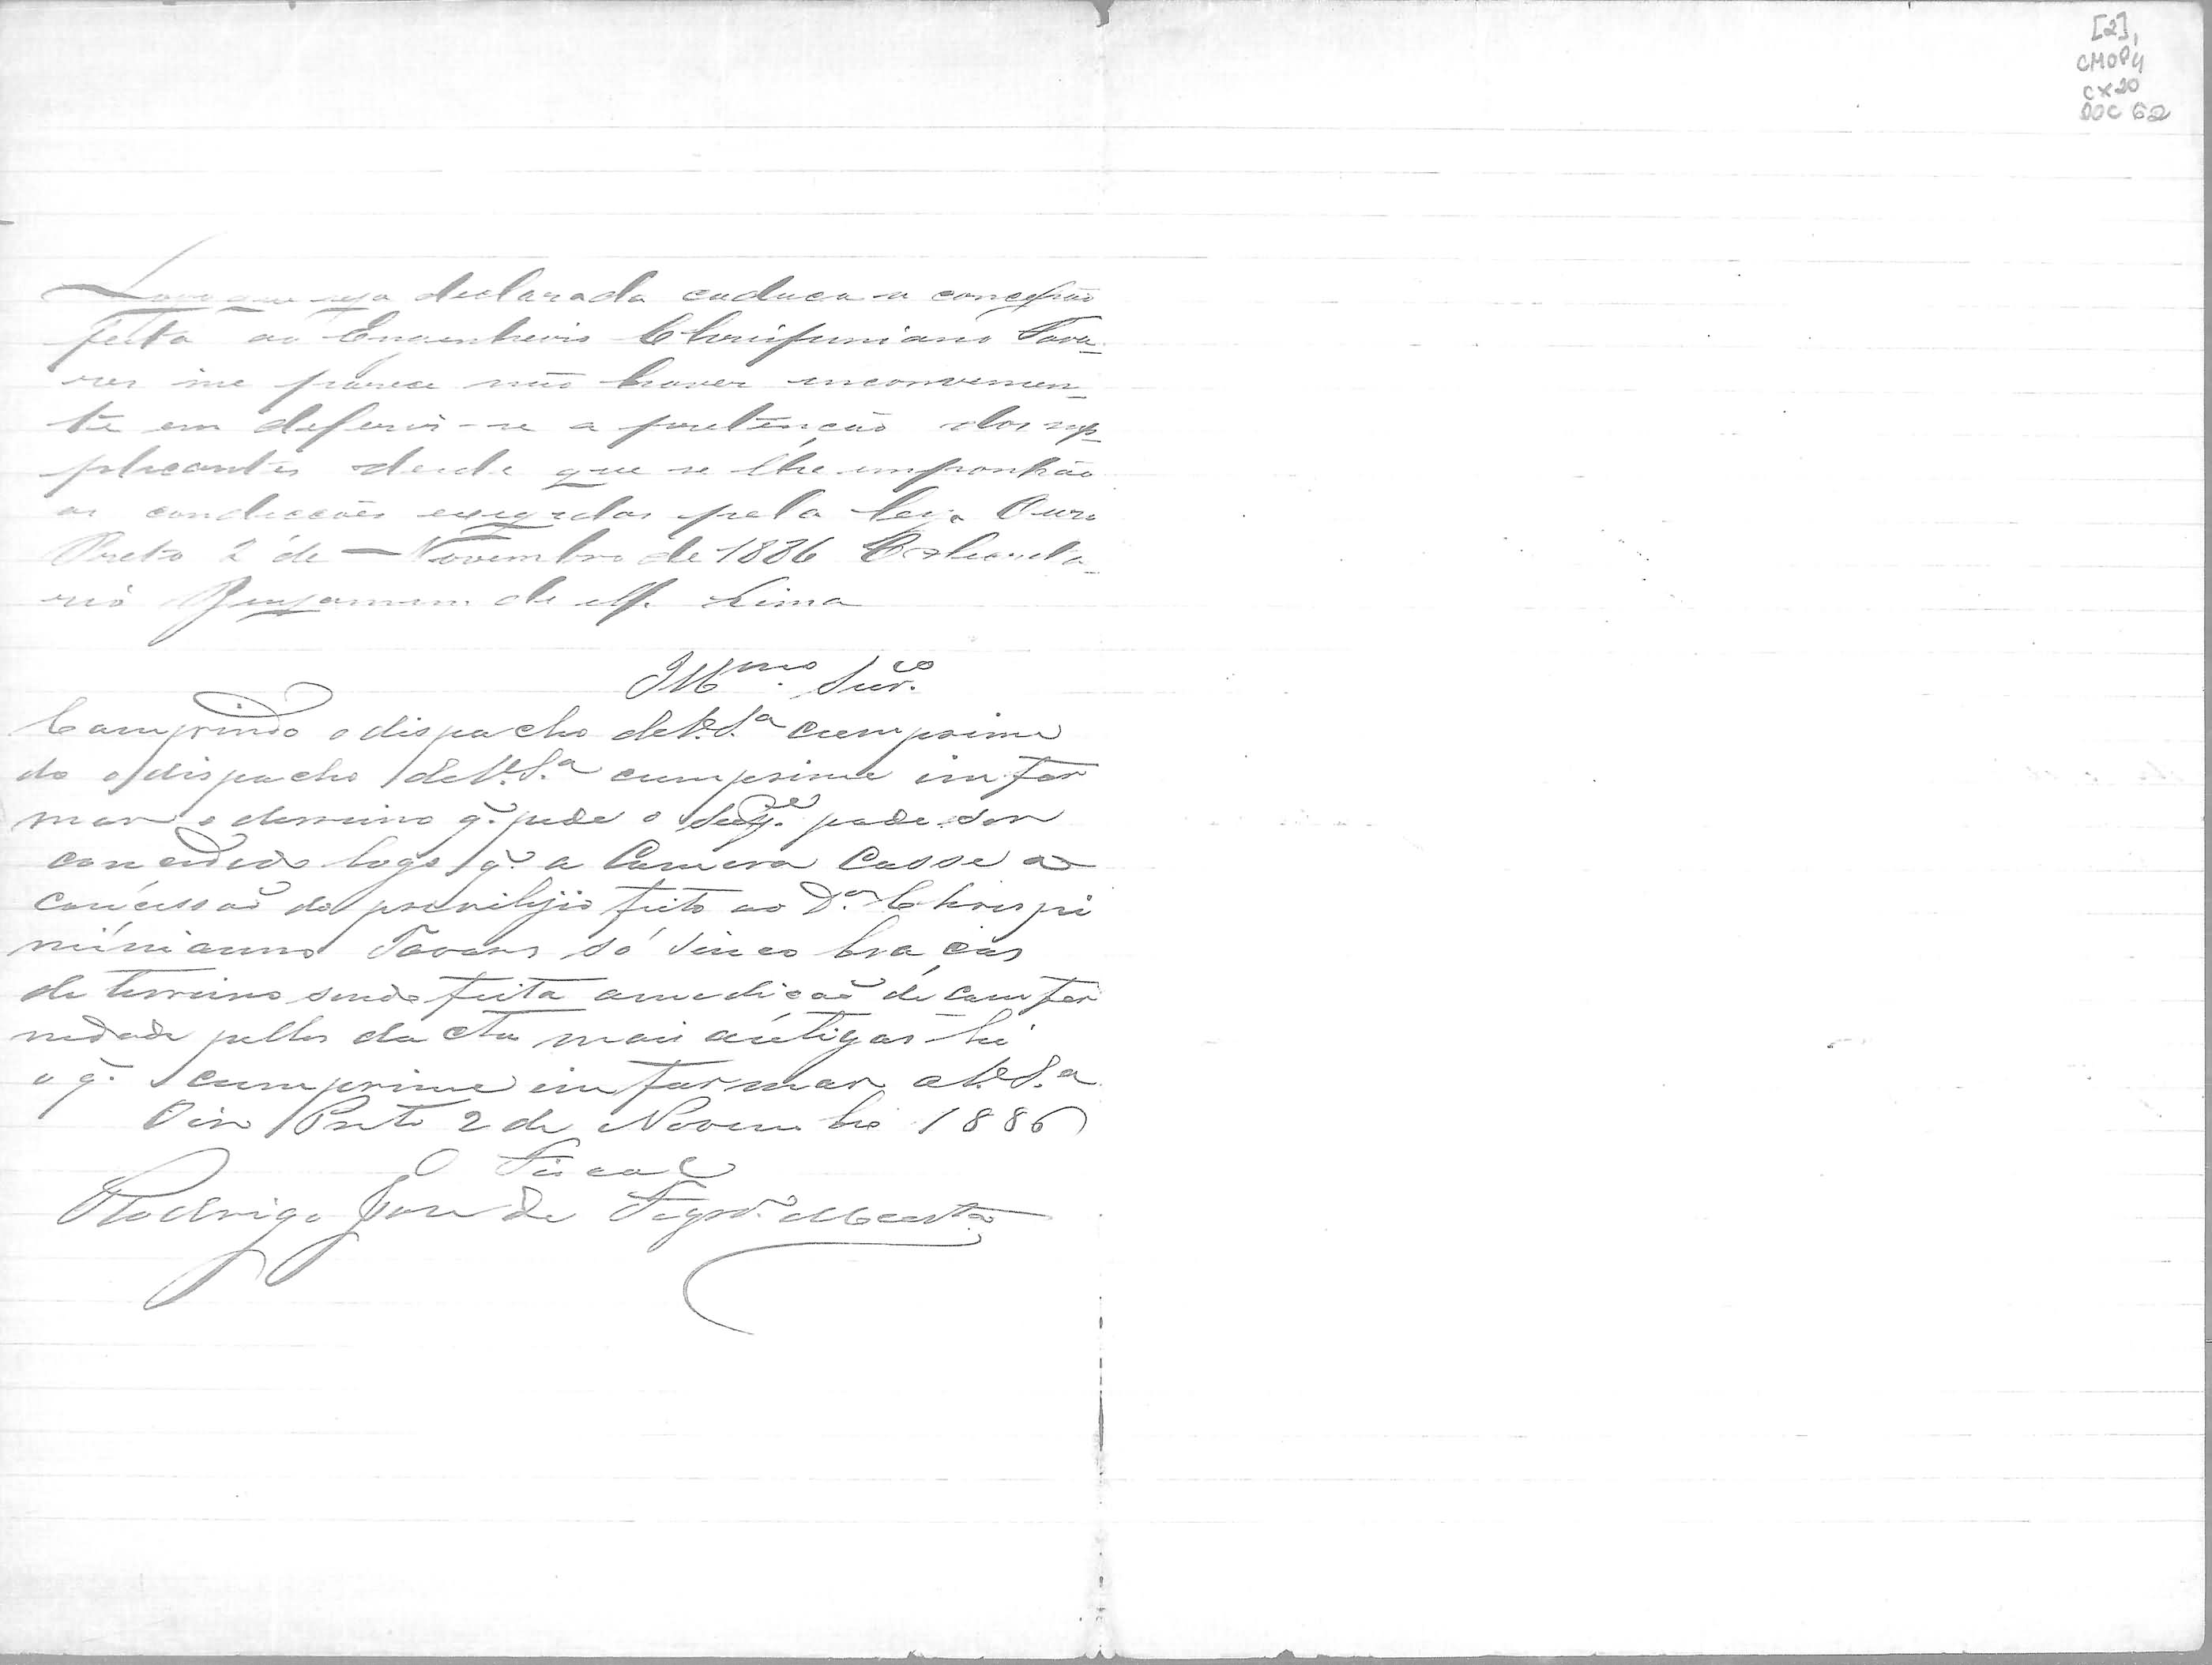 [2],
CMOP4
CX20
DOC 62
Logo que seja declarada caduca a concessão
feita ao Engenheiro Chrispiniano Tava-
res me parece não haver inconvenien-
te em deferir-se a pretenção dos sup-
plicantes desde que se lhe imponhão
as condicções exigidas pela lei. Ouro
Preto 2 de Novembro de 1886 O
rio Benjamim de M. Lima
Illmo. Snr.
Comprindo o dispacho de V.Sa cumprime
do o dispacho de V.Sa cumprime imfor
mar o derreino q. pede o Supe. pode ser
concedido logo q. a Camera Casse a
concessão do previlijio feito ao Dor. Chrispi
miniamno Tavares só sinco braças
de terreino sendo feita a medição de comfor
medade pellos data mais antigas hé
o q. cumprime imformar a V.Sa
Oiro Preto 2 de Novembro 1886
O Fiscal
Rodrigo José de Figrdo.